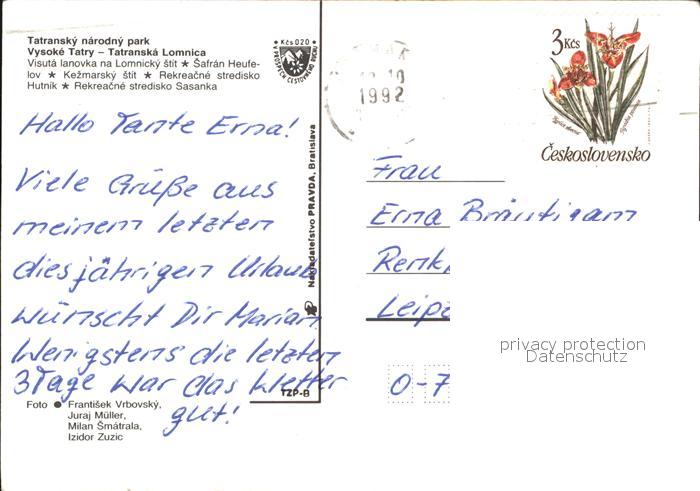 Tatranský národný park
Vysoké Tatry – Tatranská Lomnica
Visutá lanovka na Lomnický štít ★ Šafrán Heufe-
lov ★ Kežmarský štít ★ Rekreačné stredisko
Hutník ★ Rekreačné stredisko Sasanka
Kčs 020
V PROSPECH CESTOVNÉHO RUCHU
Hallo Tante Erna!
Viele Grüße aus
meinem letzten
diesjährigen Urlaub
wünscht Dir Marian
Wenigstens die letzten
3 Tage war das Wetter
gut!
Foto ● František Vrbovský,
Juraj Müller,
Milan Šmátrala,
Izidor Zuzic
Nakladateľstvo PRAVDA, Bratislava
TZP-B
1992
3 Kčs
Československo
Frau
Erna Bräutigam
Renk
Leipz
O-7
privacy protection
Datenschutz